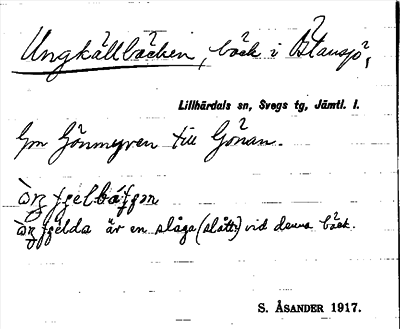 Ungkällbäcken, bäck i Ytansjö,
Lillhärdals sn, Svegs tg, Jämtl. l.
Gm Gönmyren till Gönan.
är en slåga (slått) vid denna bäck.
S. ÅSANDER 1917.